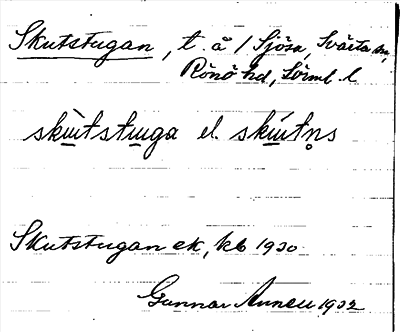 Skutstugan, t. å / Sjösa, Svärta sn,
Rönö hd, Sörml. l.
skùtstuga el. skùtn̥s
Skutstugan ek, kb 1930
Gunnar 1932